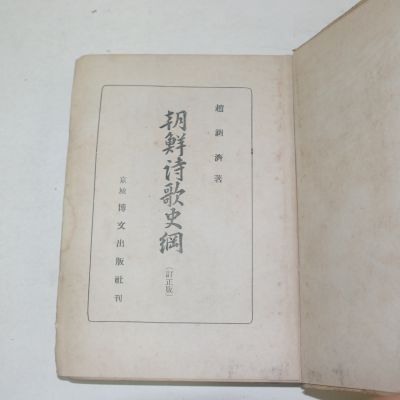 趙潤濟著
朝鮮詩歌史綱
(訂正版)
京城 博文出版社刊